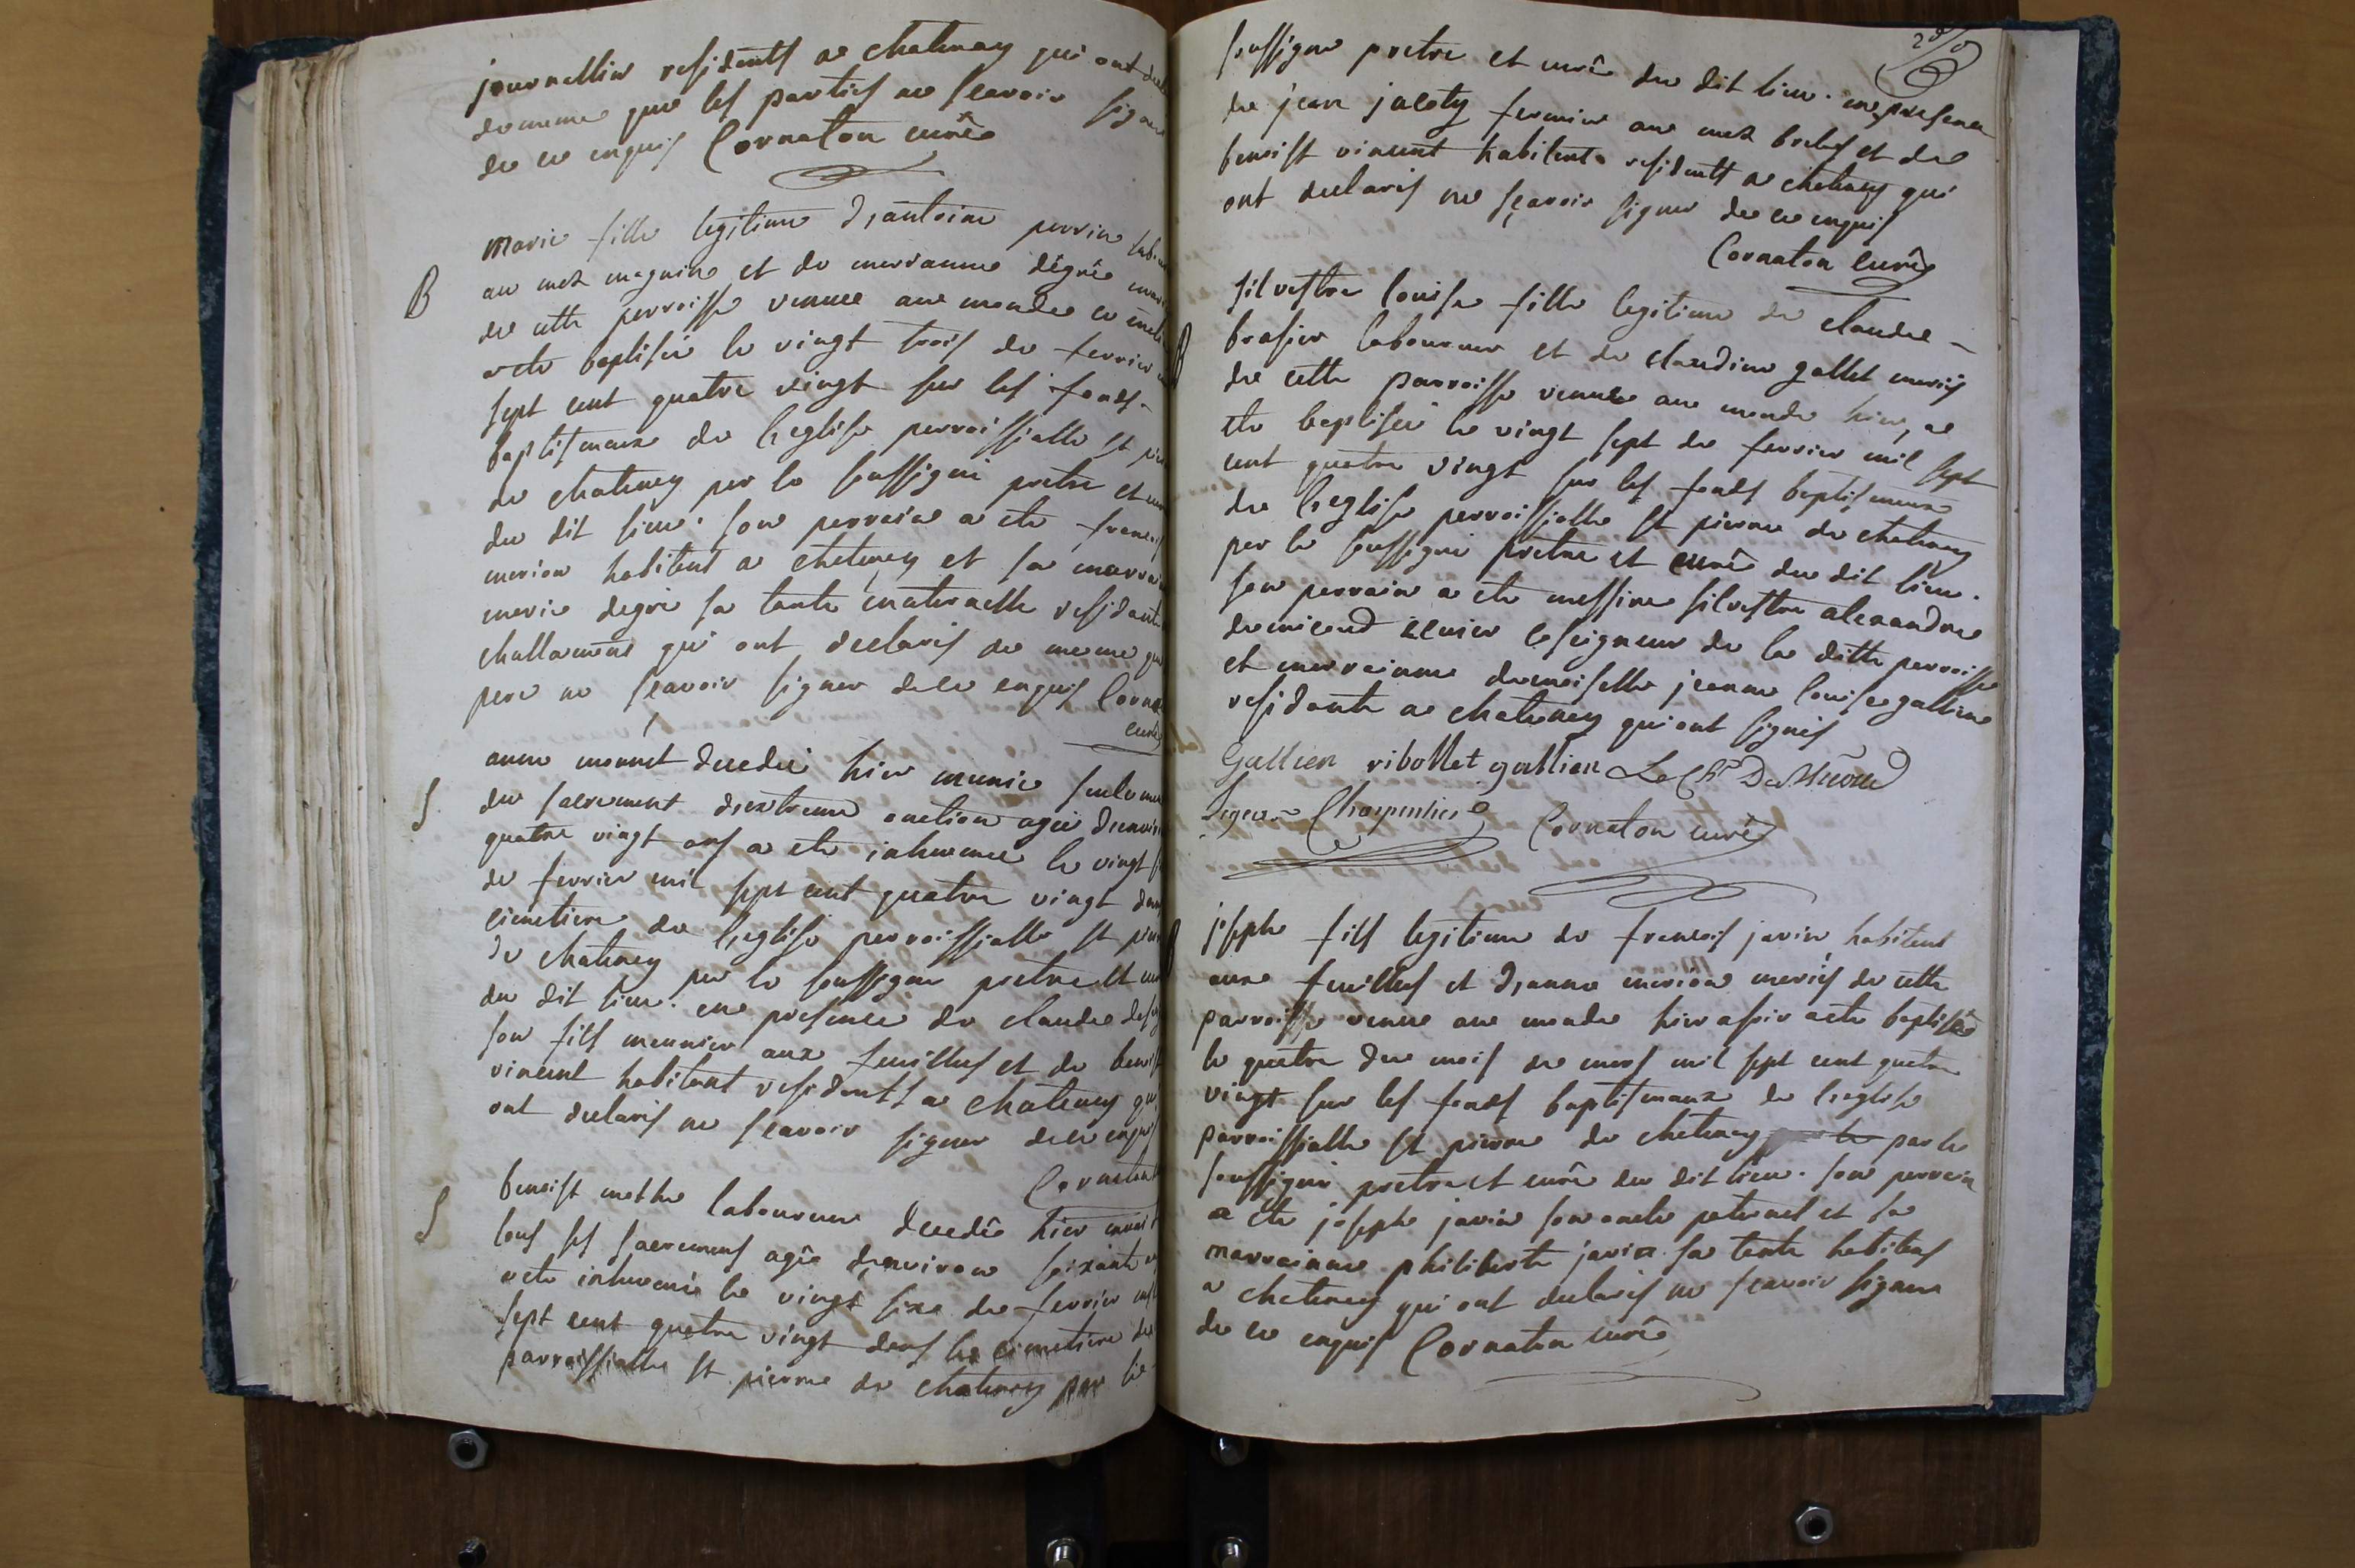 journallier residents a chatenay qui ont
de meme que les parties ne scavoir signer
de ce enquis Cornaton curé
B
Marie fille legitime d'antoine perrin
au mas magnin et de marianne degré
de cette parroisse venue au monde
a ete baptisée le vingt trois de fevrier
sept cent quatre vingt sur les fonds
baptismaux de l'eglise parroissialle st
de chatenay par le soussigné pretre et
du dit lieu. son parrain a ete francois
morion habitent a chatenay et sa marraine
marie degré sa tante maternelle residante
challamont qui ont declarés de meme que
pere ne scavoir signer de ce enquis
curé
S
anne monnet decedée hier munie
du sacrement d'extreme onction agée d'environ
quatre vingt ans a ete inhumée le vingt
de fevrier mil sept cent quatre vingt dans
cimetiere de l'eglise parroissialle st
de chatenay par le soussigné pretre et
du dit lieu. en presence de claude
son fils meunier aux feuilles et de benoist
vincent habitant residents a chatenay qui
ont declarés ne scavoir signer de ce enquis
Cornaton
S
benoist laboureur decedé hier
tous ses sacrements agée d'environ soixante
a ete inhumé le vingt six de fevrier mil
sept cent quatre vingt dans le cimetiere de
parroissialle st pierre de chatenay par le
soussigné pretre et curé du dit lieu. en presence
de jean fermier au mas et de
benoist vincent habitents residents a chatenay qui
ont declarés ne scavoir signer de ce enquis
Cornaton curé
B
silvestre louise fille legitime de claude
brasier laboureur et de claudine gallet mariés
de cette parroisse venue au monde hier, a
ete baptisée le vingt sept de fevrier mil sept
cent quatre vingt sur les fonds baptismaux
de l'eglise parroissialle st pierre de chatenay
par le soussigné pretre et curé du dit lieu.
son parrain a ete messire silvestre alexandre
seigneur de la ditte parroisse
et marrainne demoiselle jeanne louise gallien
residante a chatenay qui ont signés
Gallien ribollet gallien Le Chr
Charpentier Cornaton curé
B
josephe fils legitime de francois javin habitent
aux feuilles et d'anne morion mariés de cette
parroisse venue au monde hier a soir a ete baptisée
le quatre du mois de mars mil sept cent quatre
vingt sur les fonds baptismaux de l'eglise
parroissialle st pierre de chatenay par le
soussigné pretre et curé du dit lieu. son parrain
a ete josephe javin son oncle paternel et sa
marrainne philiberte javin sa tante habitents
a chatenay qui ont declarés ne scavoir signer
de ce enquis Cornaton curé